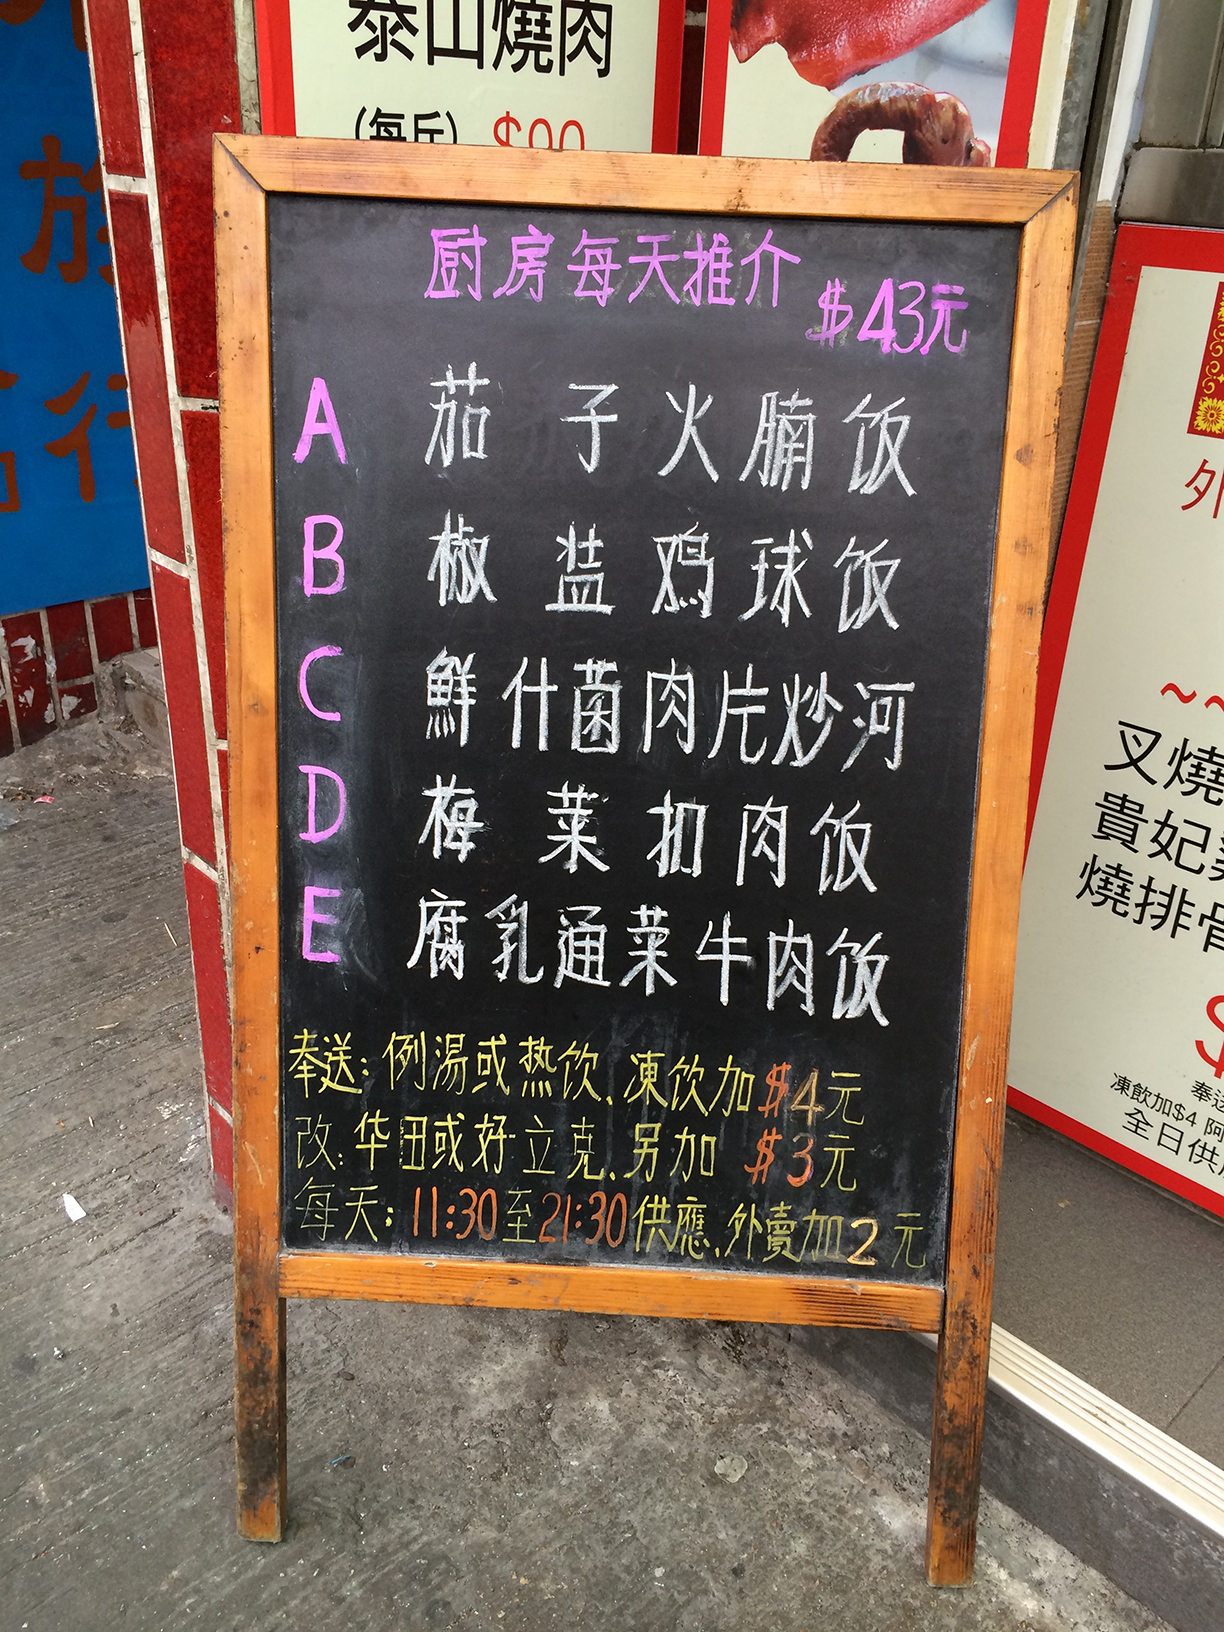 泰山燒肉
(每斤) $90
厨房每天推介 $43元
A 茄子火腩饭
B 椒盐鸡球饭
C 鮮什菌肉片炒河
D 梅菜扣肉饭
E 腐乳通菜牛肉饭
奉送:例湯或热饮.凍饮加$4元
改:华田或好立克.另加 $3元
每天:11:30至21:30供應.外賣加2元
旅
行
外
~~
叉燒
貴妃
燒排骨
$
奉送
凍飲加$4
全日供